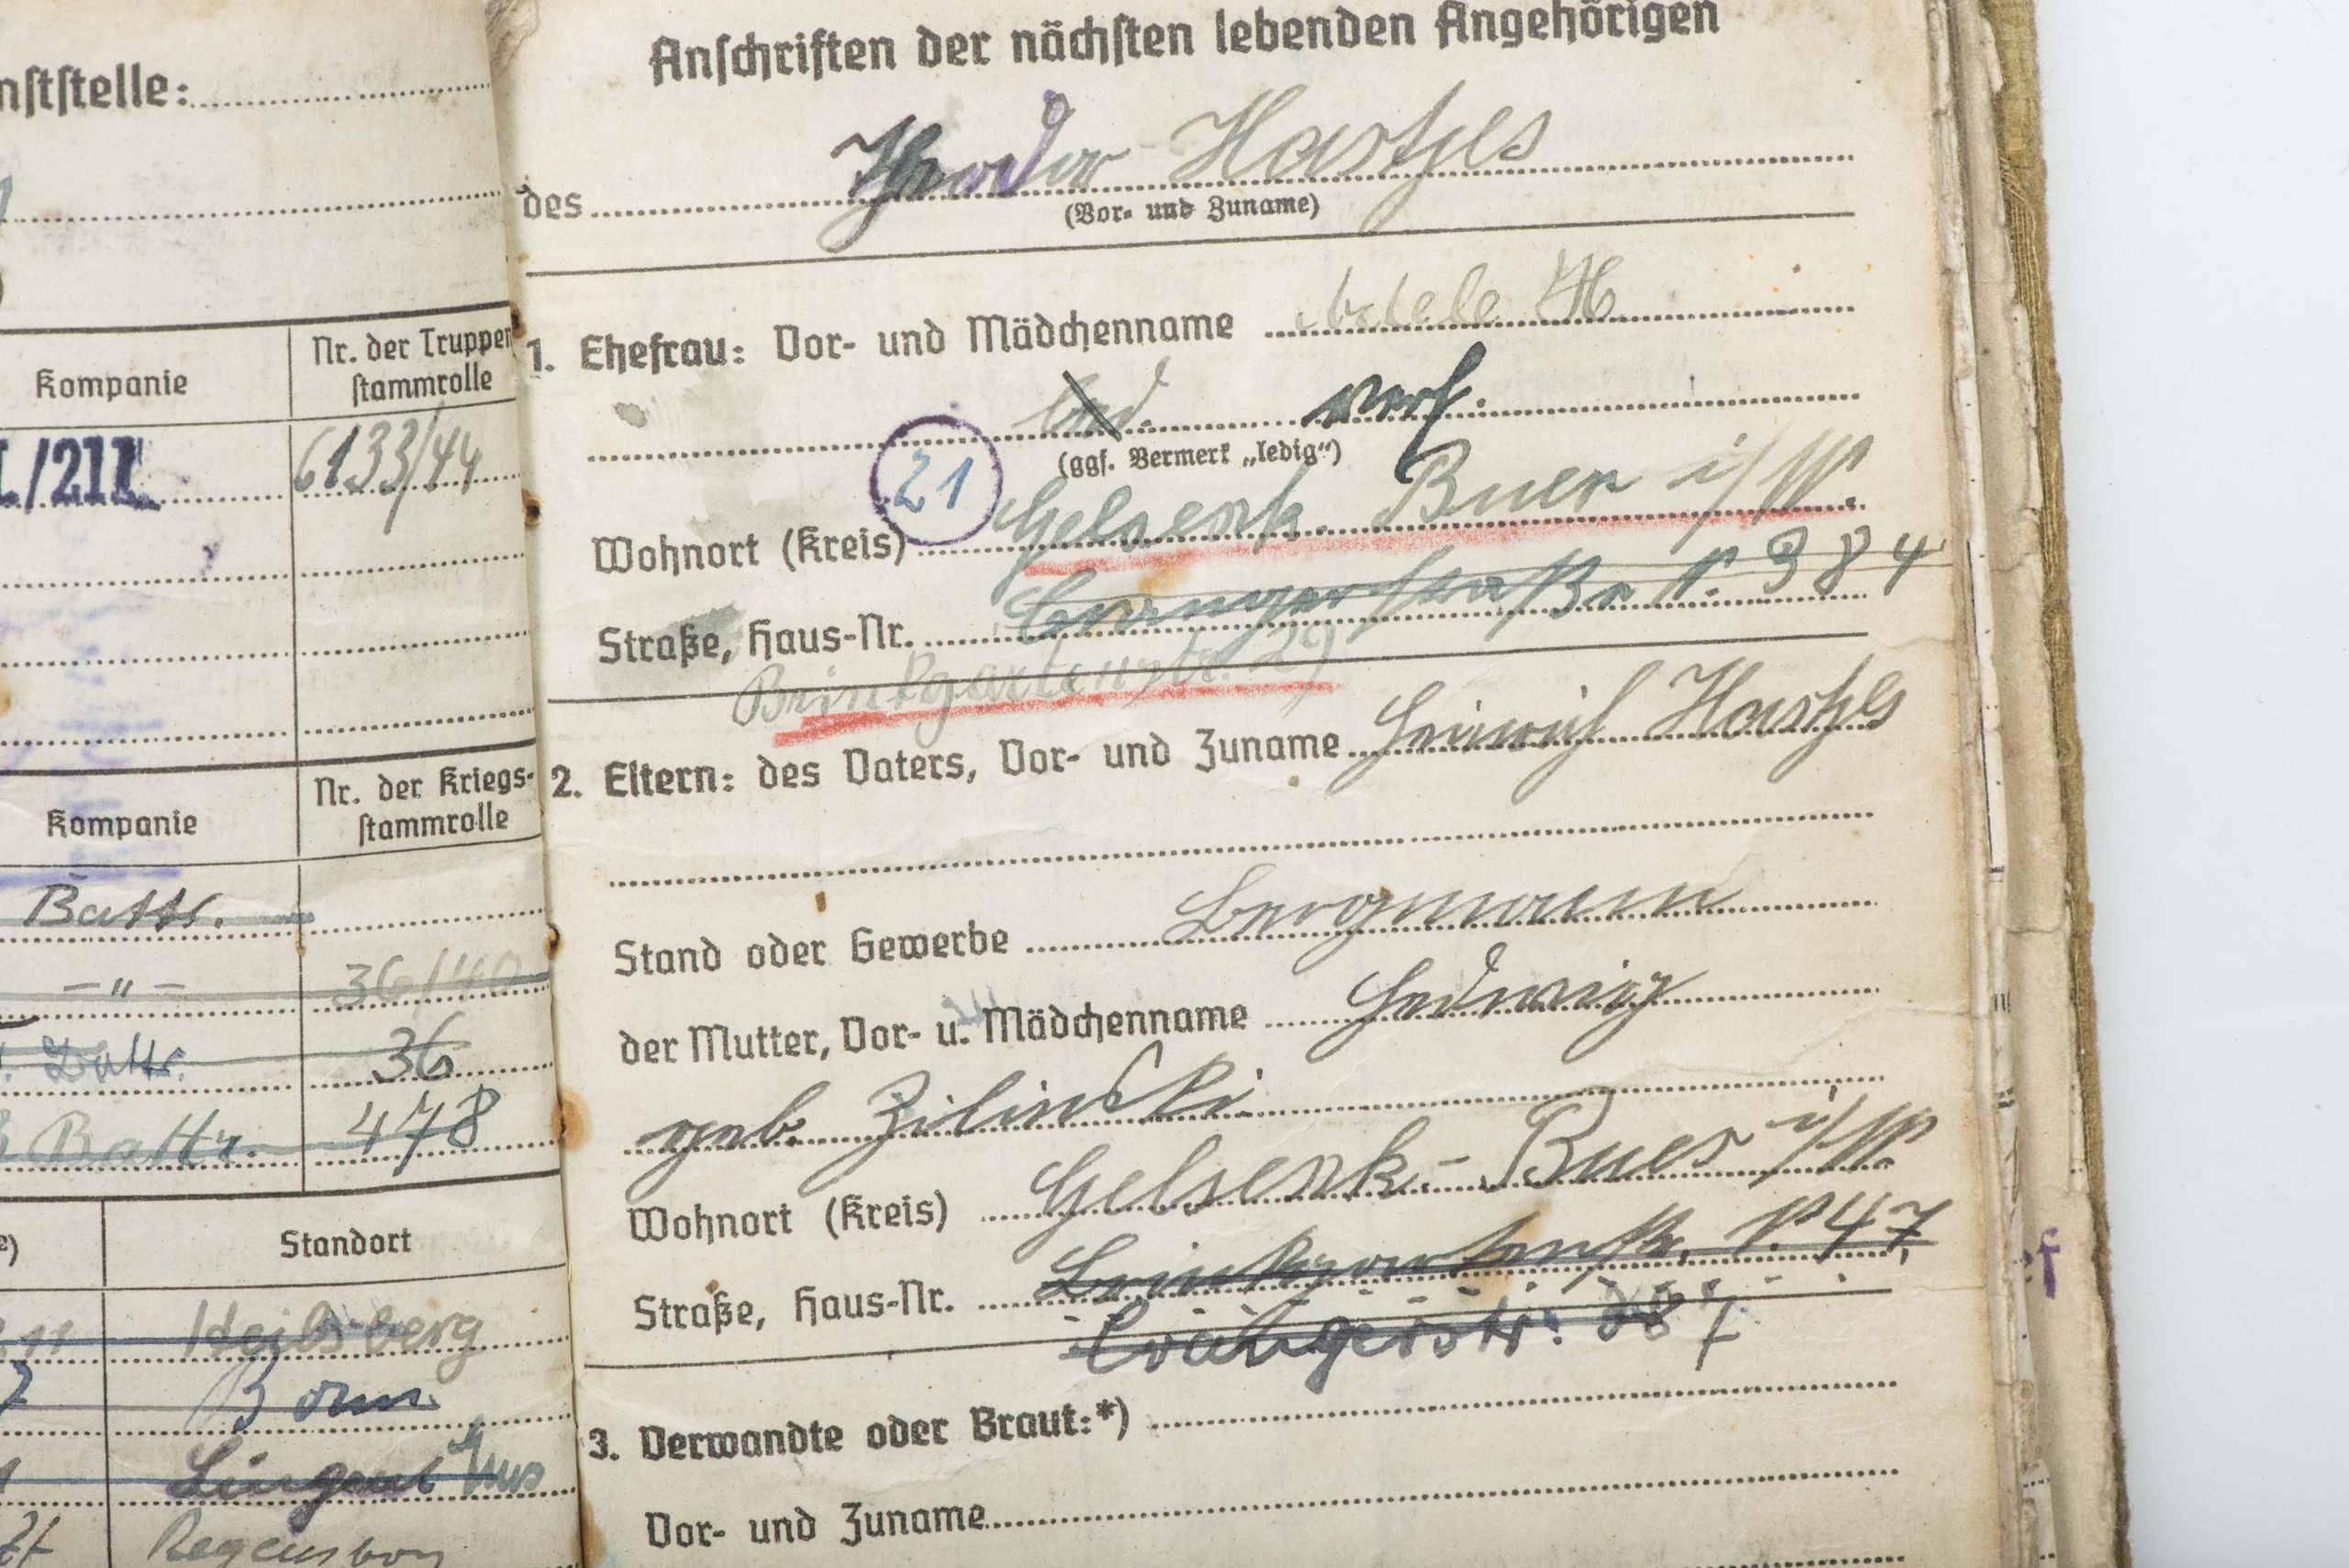 nststelle:
Kompanie
Nr. der Truppen
stammrolle
/211
6133/44
Kompanie
Nr. der Kriegs-
stammrolle
Battr.
-"-
36/40
Battr.
36
Battr.
478
e)
Standort
Heilsberg
Bonn
Regensburg
Anschriften der nächsten lebenden Angehörigen
des Theodor Hastjes
(Vor- und Zuname)
1. Ehefrau: Vor- und Mädchenname Adele H
led. verh.
(ggf. Vermerk „ledig")
21
Wohnort (Kreis) Gelsenk. Buer i/W.
Straße, Haus-Nr. Crangerstraße N. 384
Brinkgartenstr. 29
2. Eltern: des Vaters, Vor- und Zuname Heinrich Hastjes
Stand oder Gewerbe Bergmann
der Mutter, Vor- u. Mädchenname Hedwig
geb. Zilinski
Wohnort (Kreis) Gelsenk.- Buer i/W.
Straße, Haus-Nr. Brinkgartenstr. N. 47
Crangerstr. 387
3. Verwandte oder Braut:*)
Vor- und Zuname